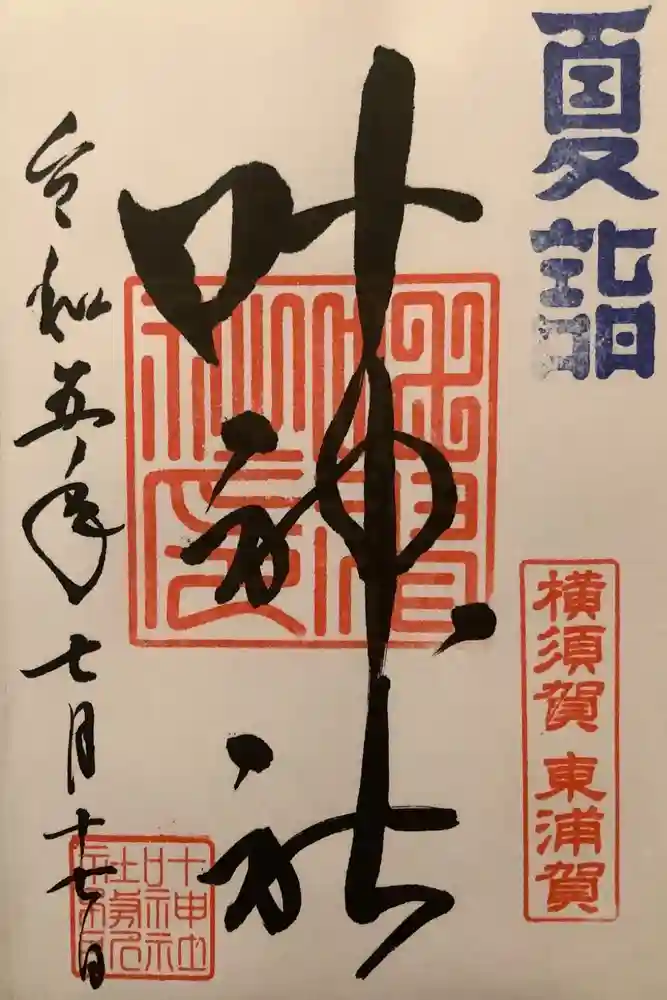 夏詣
横須賀 東浦賀
叶神社
叶神社
社務所
之印
令和五年七月十七日